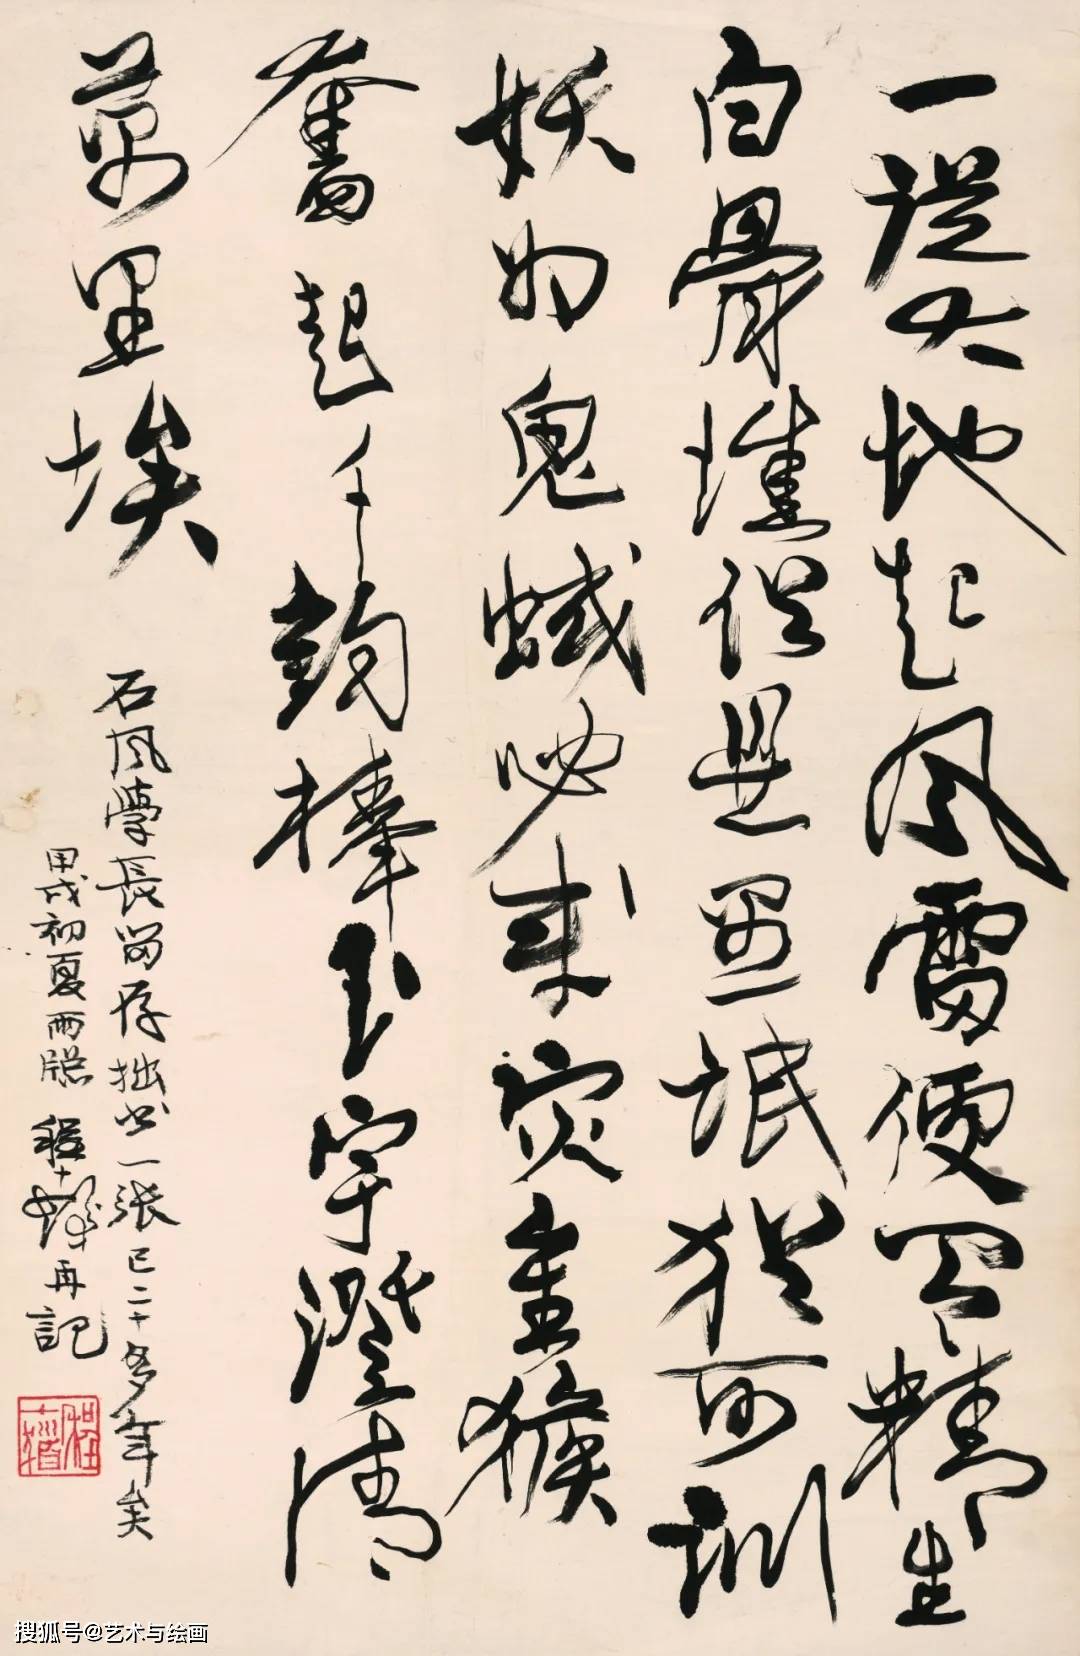 一從大地起风雷便有精生
白骨堆僧是愚氓猶可訓
妖为鬼蜮必成灾金猴
奮起千鈞棒玉宇澄清
萬里埃
石风學長留存拙书一張已二十多年矣
甲戌初夏雨牕 程十髮再記
搜狐号@艺术与绘画